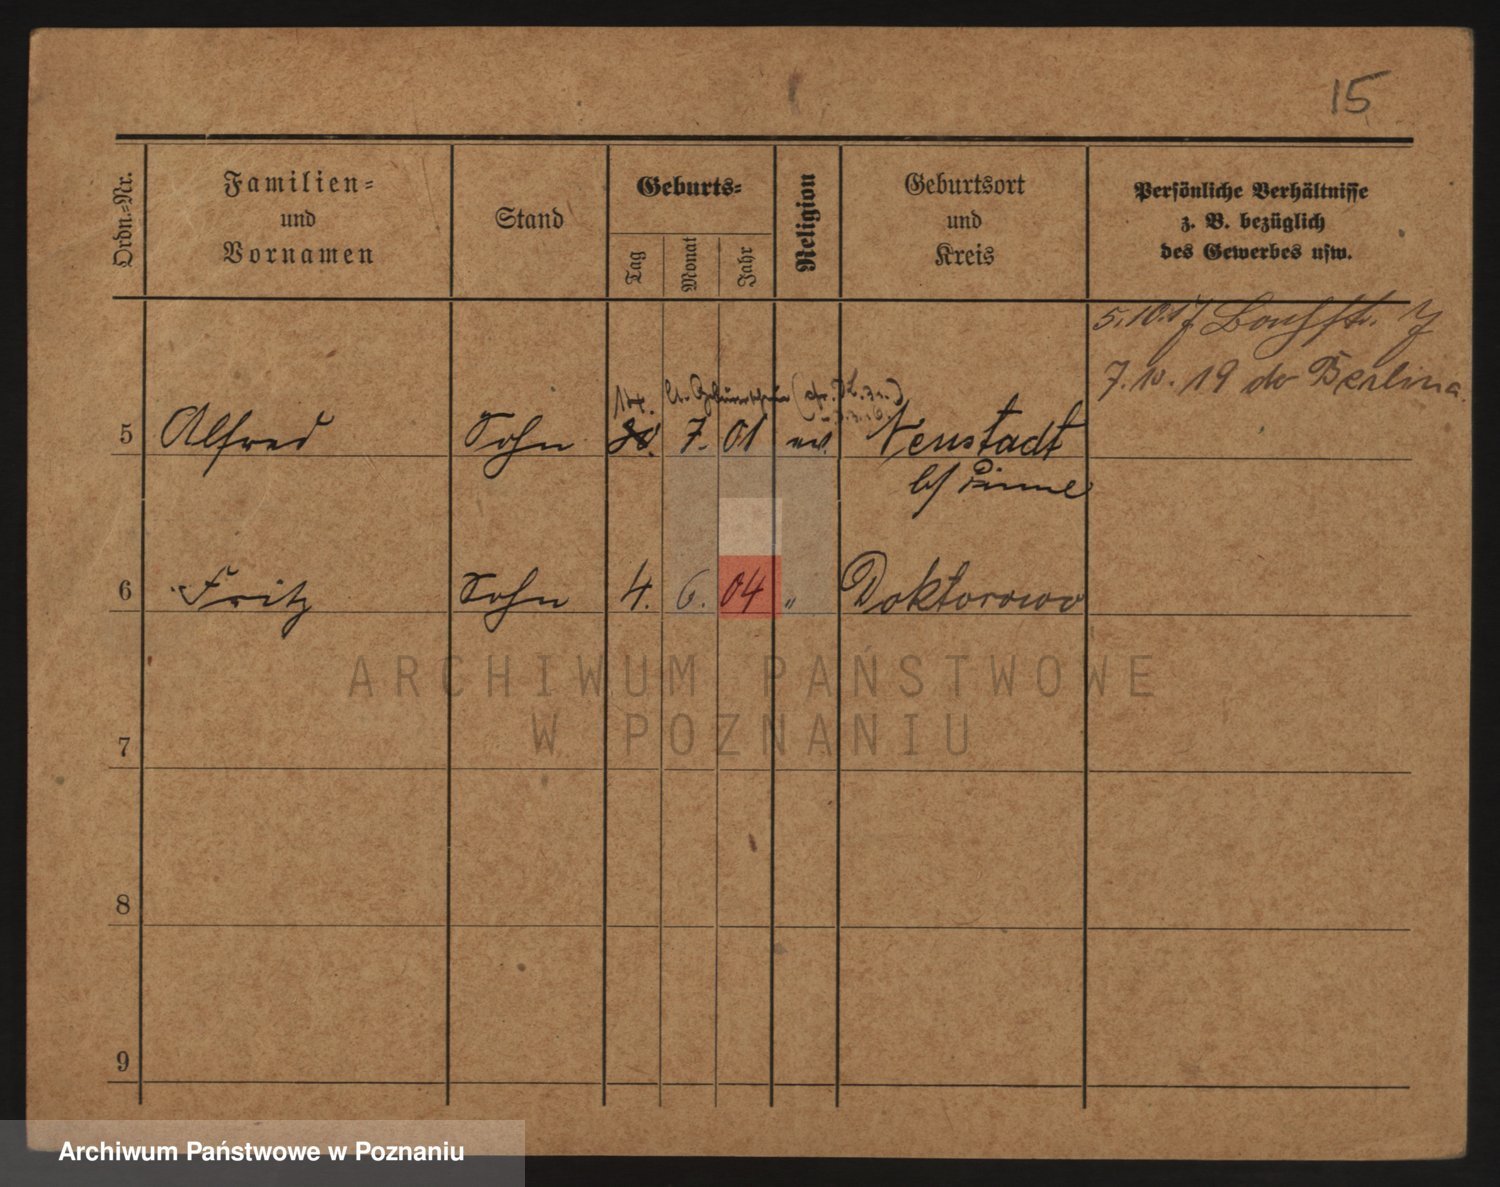 15
Ordn.-Nr.
Familien-
und
Vornamen
Stand
Geburts-
Tag
Monat
Jahr
Religion
Geburtsort
und
Kreis
Persönliche Verhältnisse
z. B. bezüglich
des Gewerbes usw.
5.10.17 7
7.10.19 do Berlina.
14. lt. Geburtschein
5 Alfred Sohn 7. 01 ev. Neustadt
b/ Pinne
6 Fritz Sohn 4. 6. 04 " Doktorowo
ARCHIWUM PAŃSTWOWE
W POZNANIU
7
8
9
Archiwum Państwowe w Poznaniu